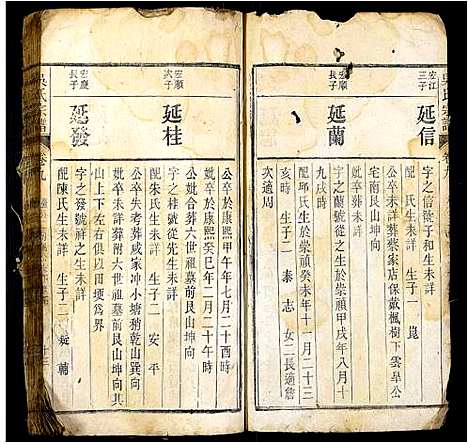 吳氏宗譜
卷九
宏江
三子
延信
字之信
配
公卒未詳葬蔡家店保戴楓樹下雲皋公
宅南艮山坤向
延蘭
字之蘭號從之生於崇禎甲戌年八月十
九戌時
配邱氏生於崇禎癸未年十一月二十三
亥時 生子二 泰 志 女二長適詹
次適周
宏順
次子
延桂
公卒于康熙甲午年七月二十酉時
妣卒于康熙癸巳年二月二十午時
公妣合葬六世祖墓前艮山坤向
字之桂號從先生未詳
配朱氏生未詳 生子二 安 平
公卒失考葬戚家冲小塘稍乾山巽向
妣卒未詳葬附六世祖墓前艮山坤向其
山上下左右俱以田埂為界
宏慶
長子
延發
字之發號祥之生未詳
配陳氏生未詳 生子二
吳氏宗譜
卷九